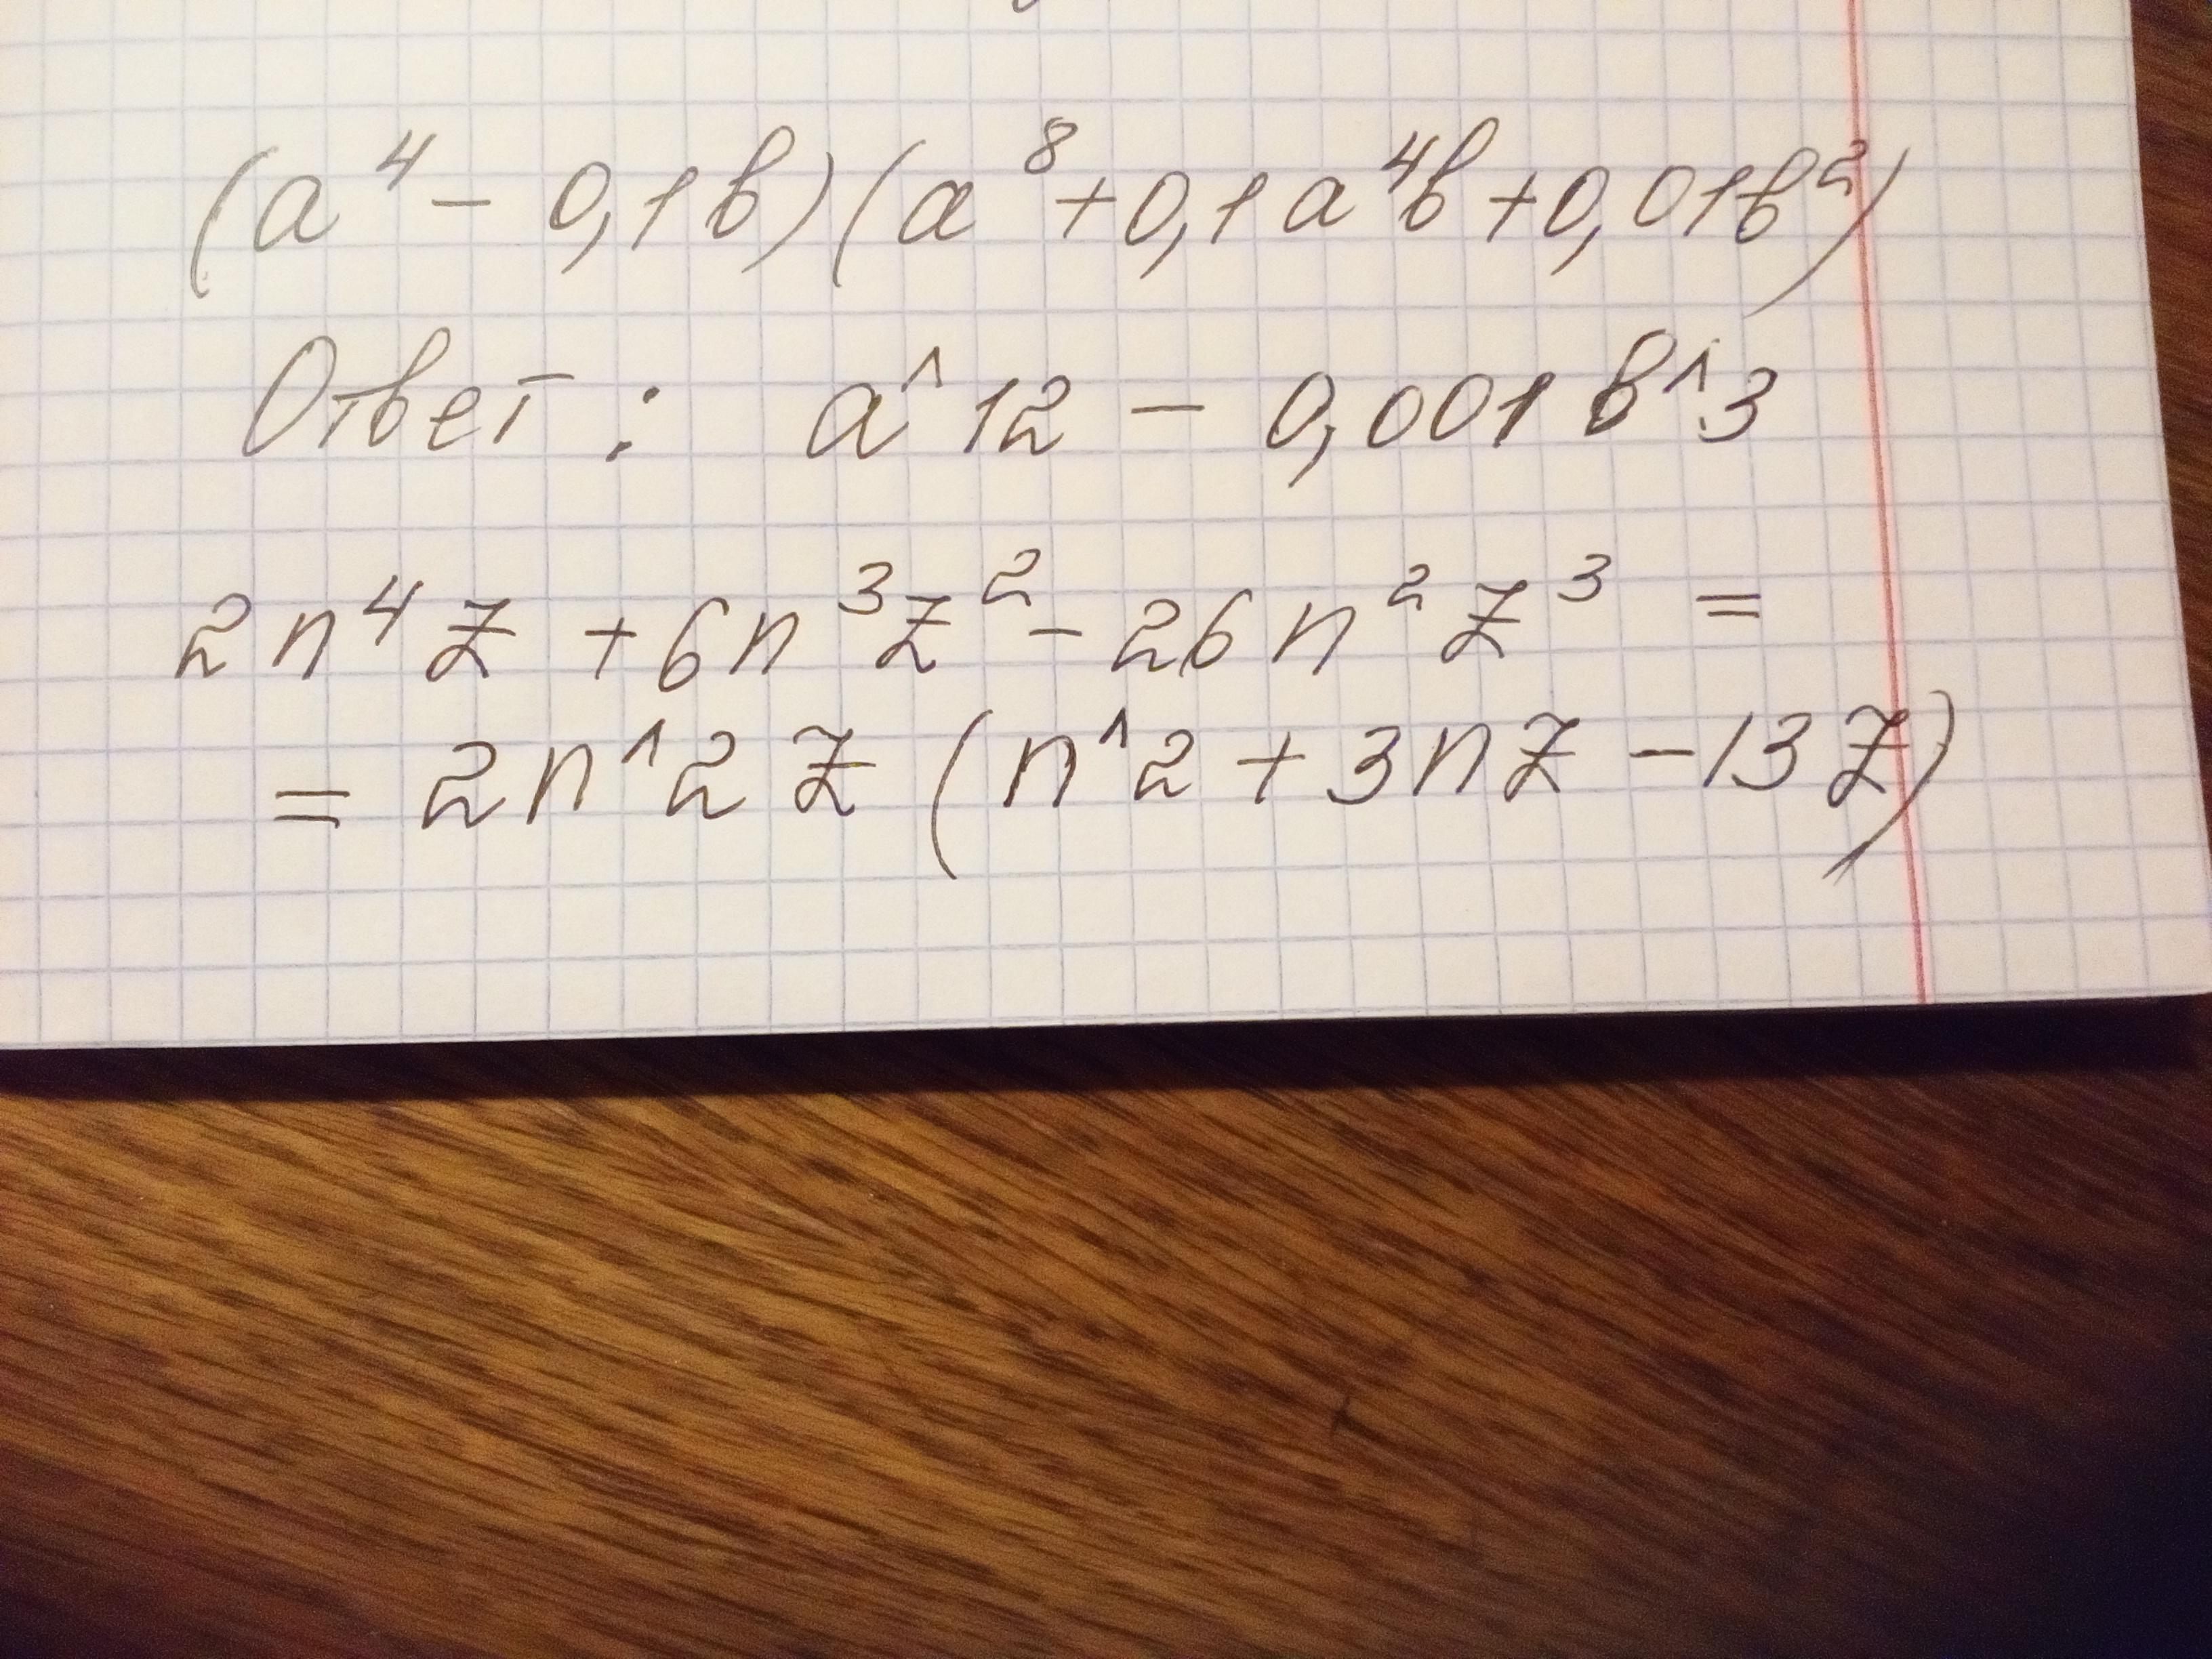 (a⁴ - 0,1в)(a⁸ + 0,1a⁴в + 0,01в²)
Ответ : a^12 - 0,001в^3
2n⁴z + 6n³z² - 26n²z³ =
= 2n^2z (n^2 + 3nz - 13z)